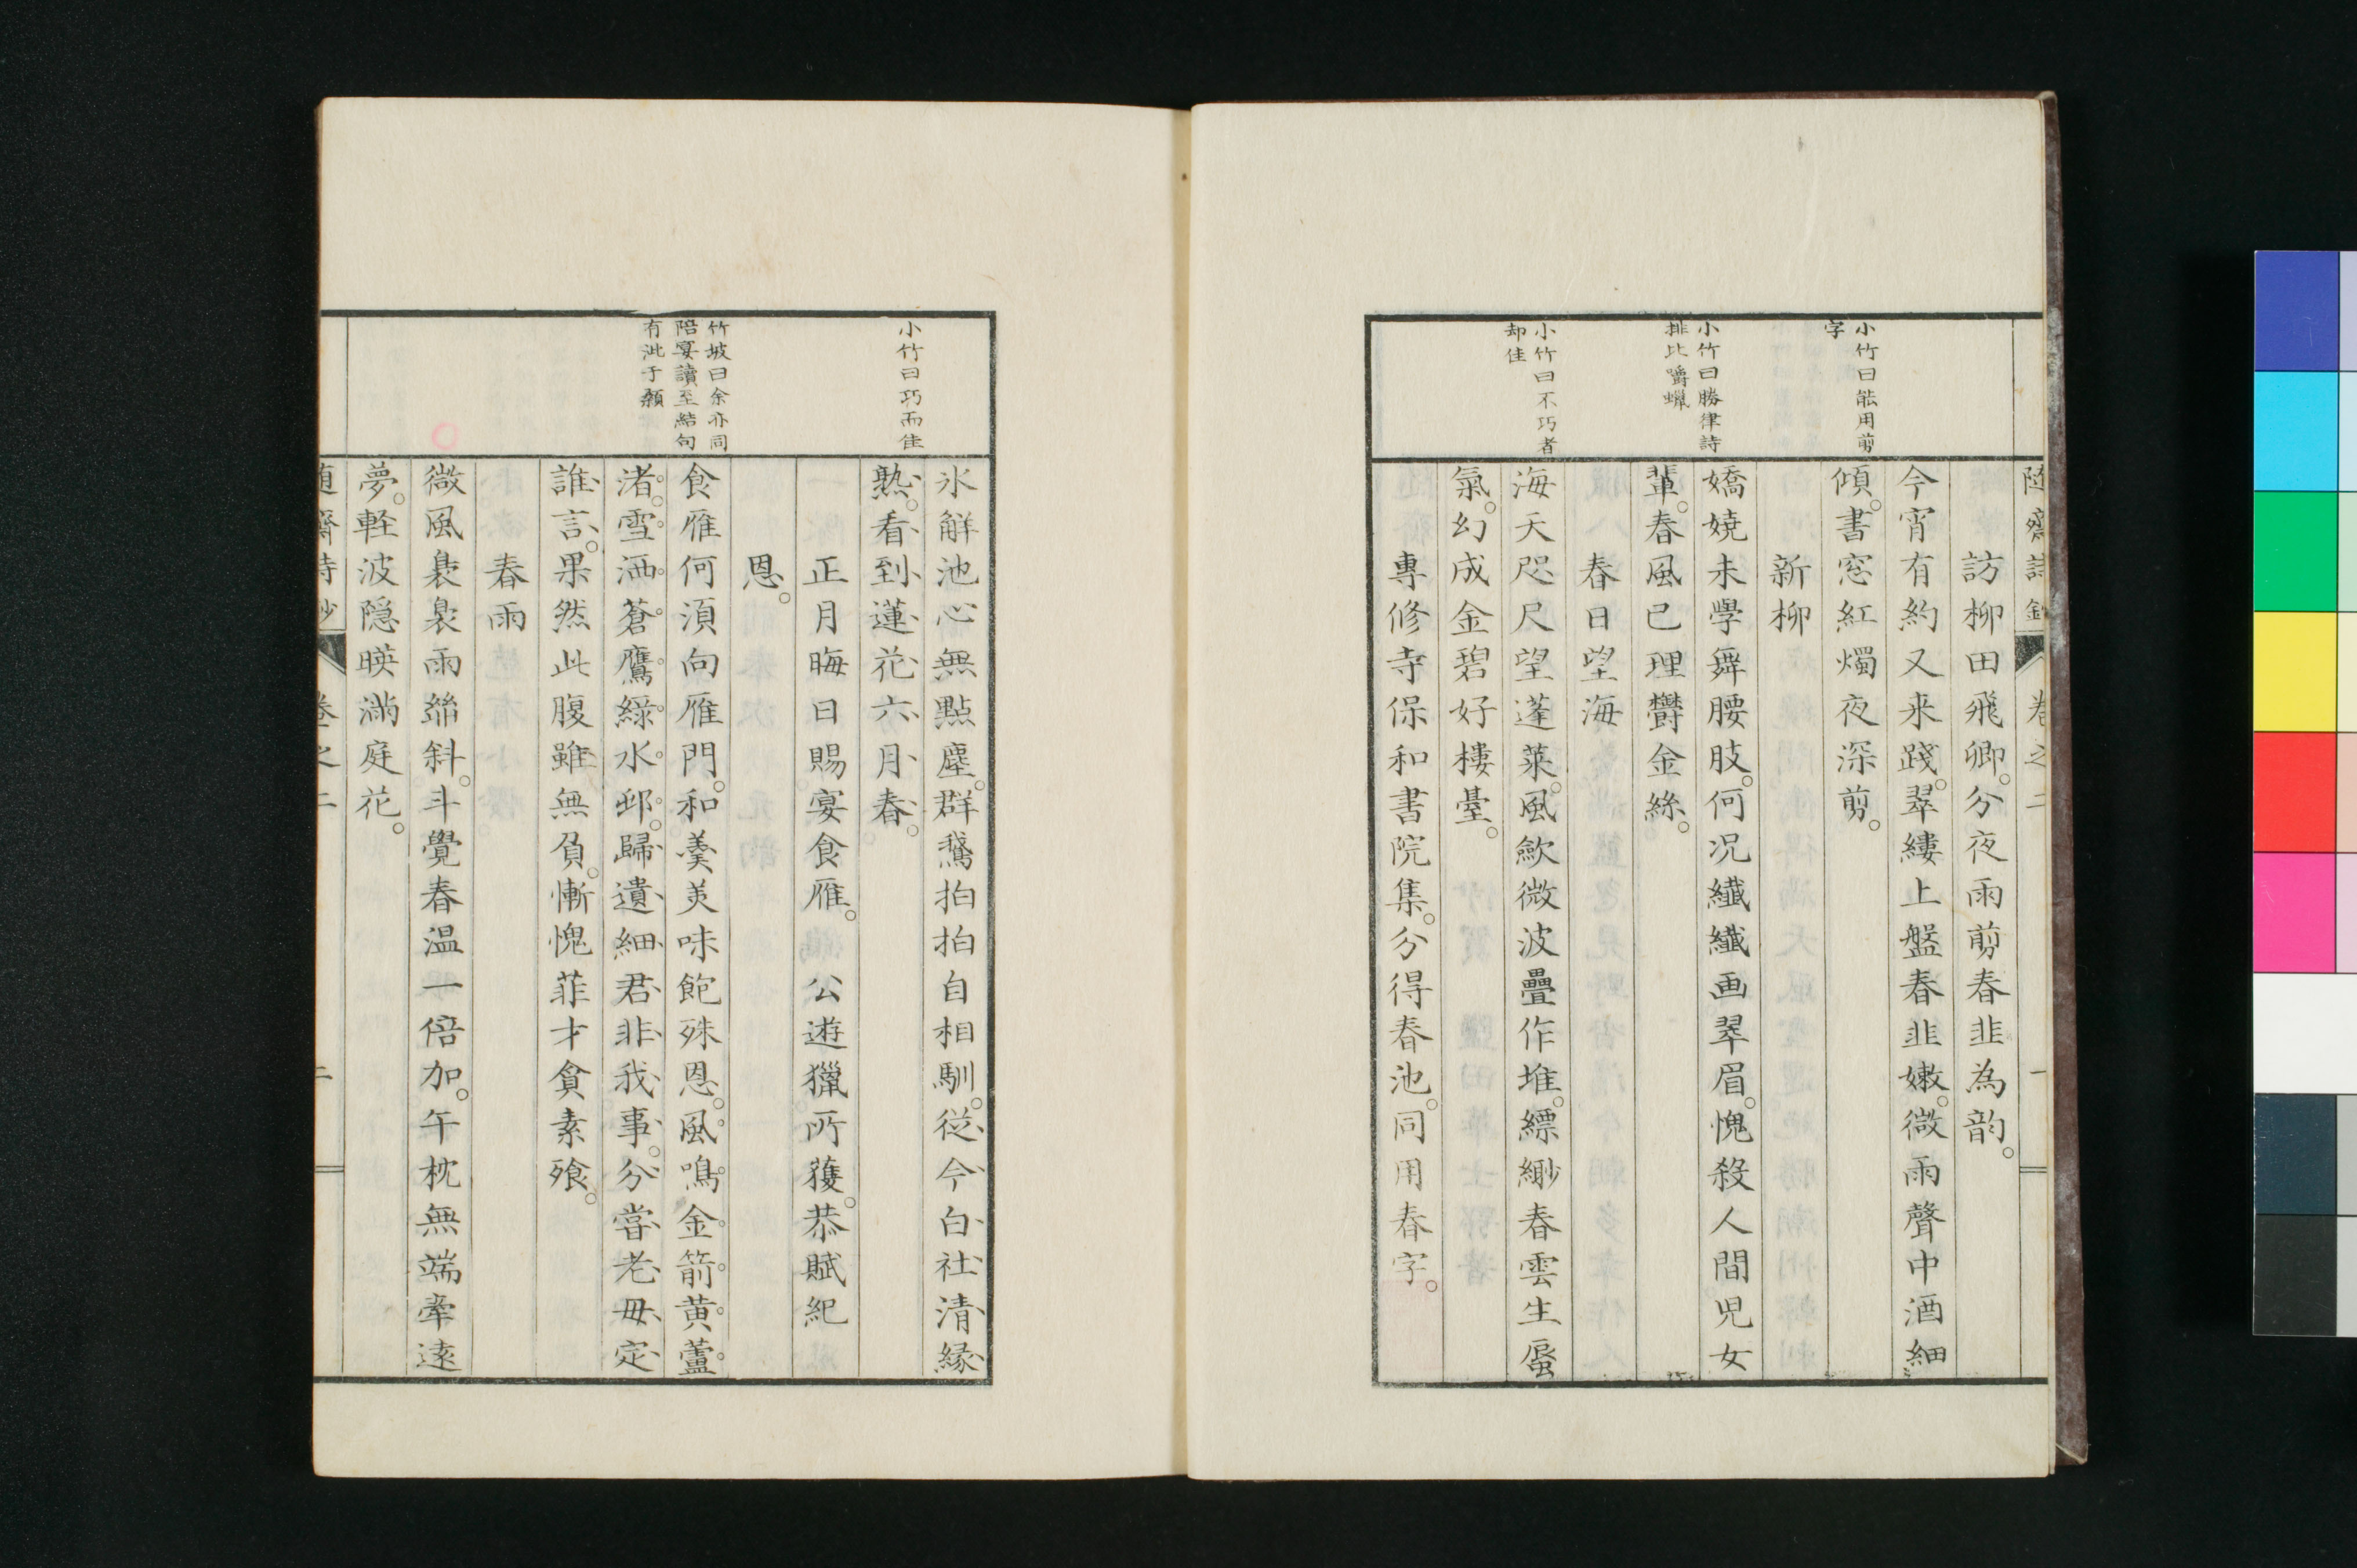 隨齋詩鈔 卷之二 一
訪柳田飛卿。分夜雨剪春韭為韵。
今宵有約又来踐。翠縷上盤春韭嫩。微雨聲中酒細
傾。書窓紅燭夜深剪。
小竹曰能用剪
字
新柳
嬌嬈未學舞腰肢。何况纎纎画翠眉。愧殺人間児女
輩。春風已理欝金絲。
小竹曰勝律詩
排比嚼蠟
春日望海
海天咫尺望蓬萊。風歛微波疊作堆。縹緲春雲生蜃
氣。幻成金碧好樓臺。
小竹曰不巧者
却佳
專修寺保和書院集。分得春池。同用春字。
氷觧池心無點塵。群鵞拍拍自相馴。従今白社清縁
熟。看到蓮花六月春。
小竹曰巧而佳
正月晦日賜宴食雁。公遊獵所獲。恭賦紀
恩。
食雁何須向雁門。和羹美味飽殊恩。風鳴金箭黄蘆
渚。雪洒蒼鷹緑水邨。歸遺細君非我事。分嘗老母定
誰言。果然此腹雖無負。慚愧菲才貪素飱。
竹坡曰余亦同
陪宴讀至結句
有泚于顙
春雨
微風裊裊雨絲斜。斗覺春温一倍加。午枕無端牽遠
夢。軽波隠暎満庭花。
随齋詩鈔 卷之二 二